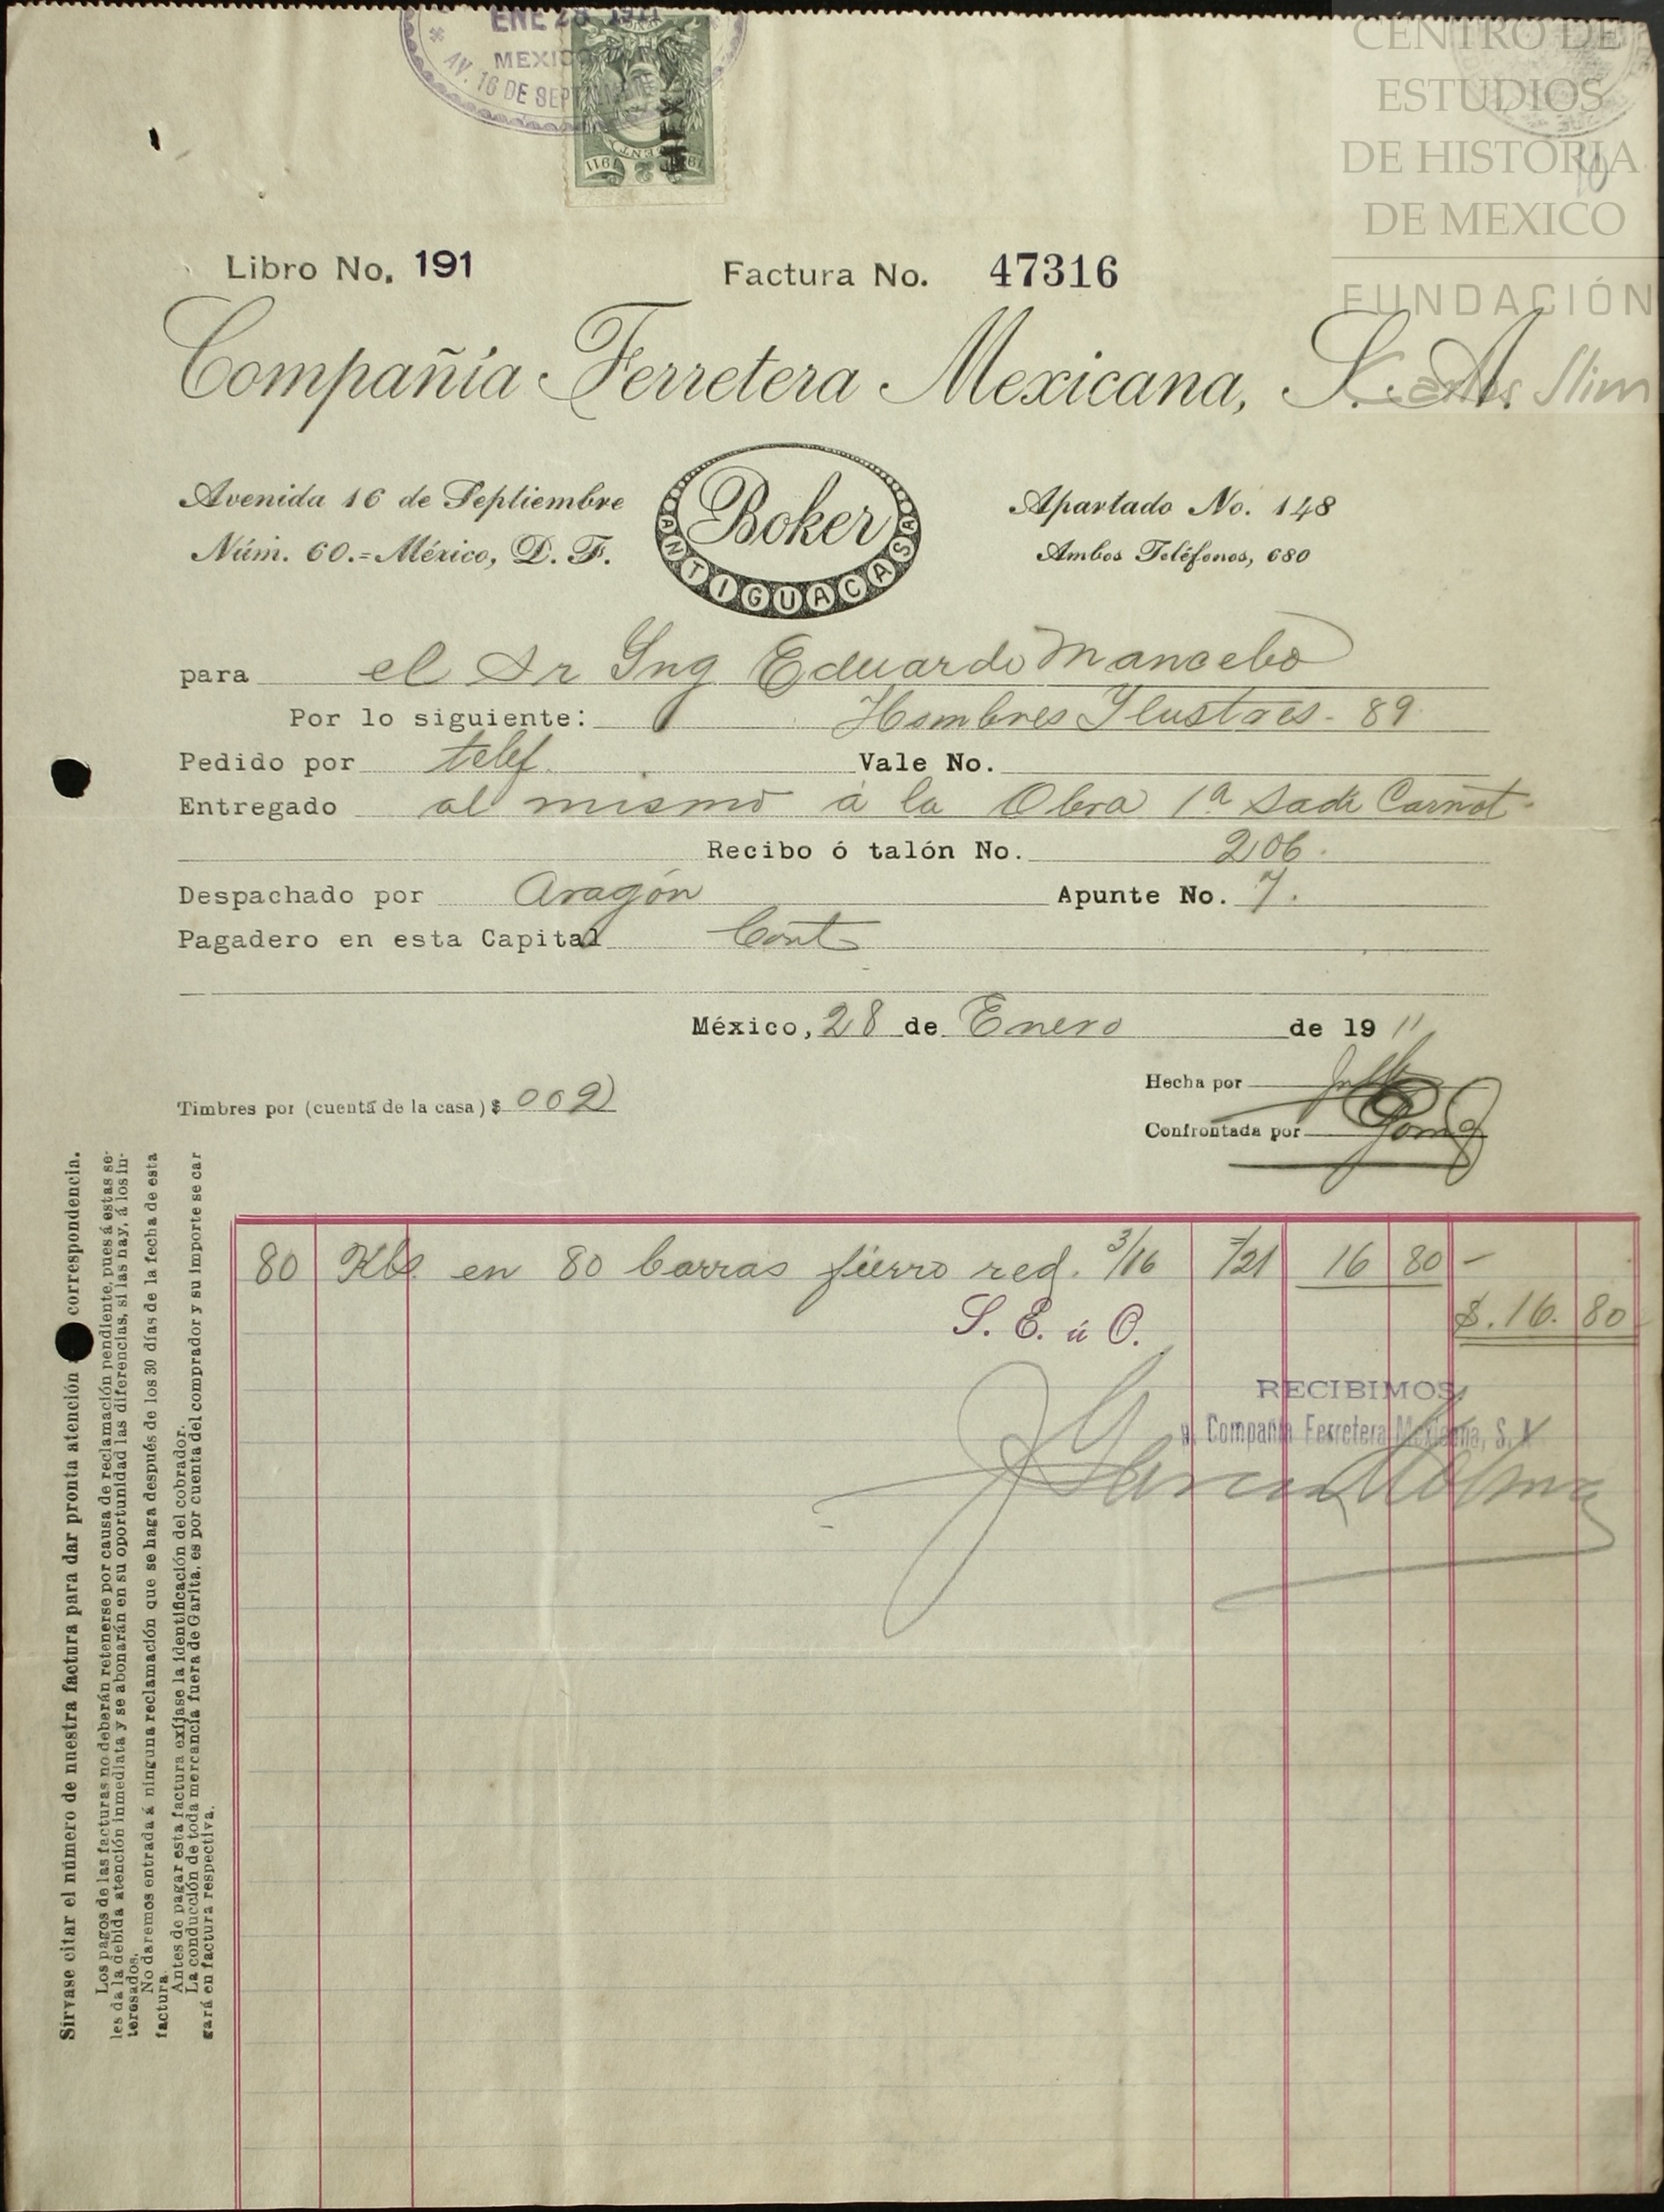 ENE 28 1911
MEXICO
AV. 16 DE SEPTIEMBRE
1911
CENTRO DE
ESTUDIOS
DE HISTORIA
DE MEXICO
FUNDACIÓN
Carlos Slim
Libro No. 191 Factura No. 47316
Compañía Ferretera Mexicana, S. A.
Avenida 16 de Septiembre
Núm. 60.=México, D. F.
Boker
ANTIGUA CASA
Apartado No. 148
Ambos Teléfonos, 680
para el Sr Ing Eduardo Mancebo
Por lo siguiente: Hombres Ilustres - 89
Pedido por telef. Vale No.
Entregado al mismo á la Obra 1ª Sadi Carnot.
Recibo ó talón No. 206.
Despachado por Aragón Apunte No. 7.
Pagadero en esta Capital Cont
México, 28 de Enero de 1911
Timbres por (cuenta de la casa) $ 002
Hecha por
Confrontada por
80 Kls. en 80 barras fierro red. 3/16 /21 16 80 –
S. E. ú O. $. 16. 80
RECIBIMOS,
p. Compañía Ferretera Mexicana, S. A.
Sírvase citar el número de nuestra factura para dar pronta atención correspondencia.
Los pagos de las facturas no deberán retenerse por causa de reclamación pendiente, pues á estas se-
les da la debida atención inmediata y se abonarán en su oportunidad las diferencias, si las hay, á los in-
teresados.
No daremos entrada á ninguna reclamación que se haga después de los 30 días de la fecha de esta
factura.
Antes de pagar esta factura exíjase la identificación del cobrador.
La conducción de toda mercancía fuera de Garita, es por cuenta del comprador y su importe se car
gará en factura respectiva.